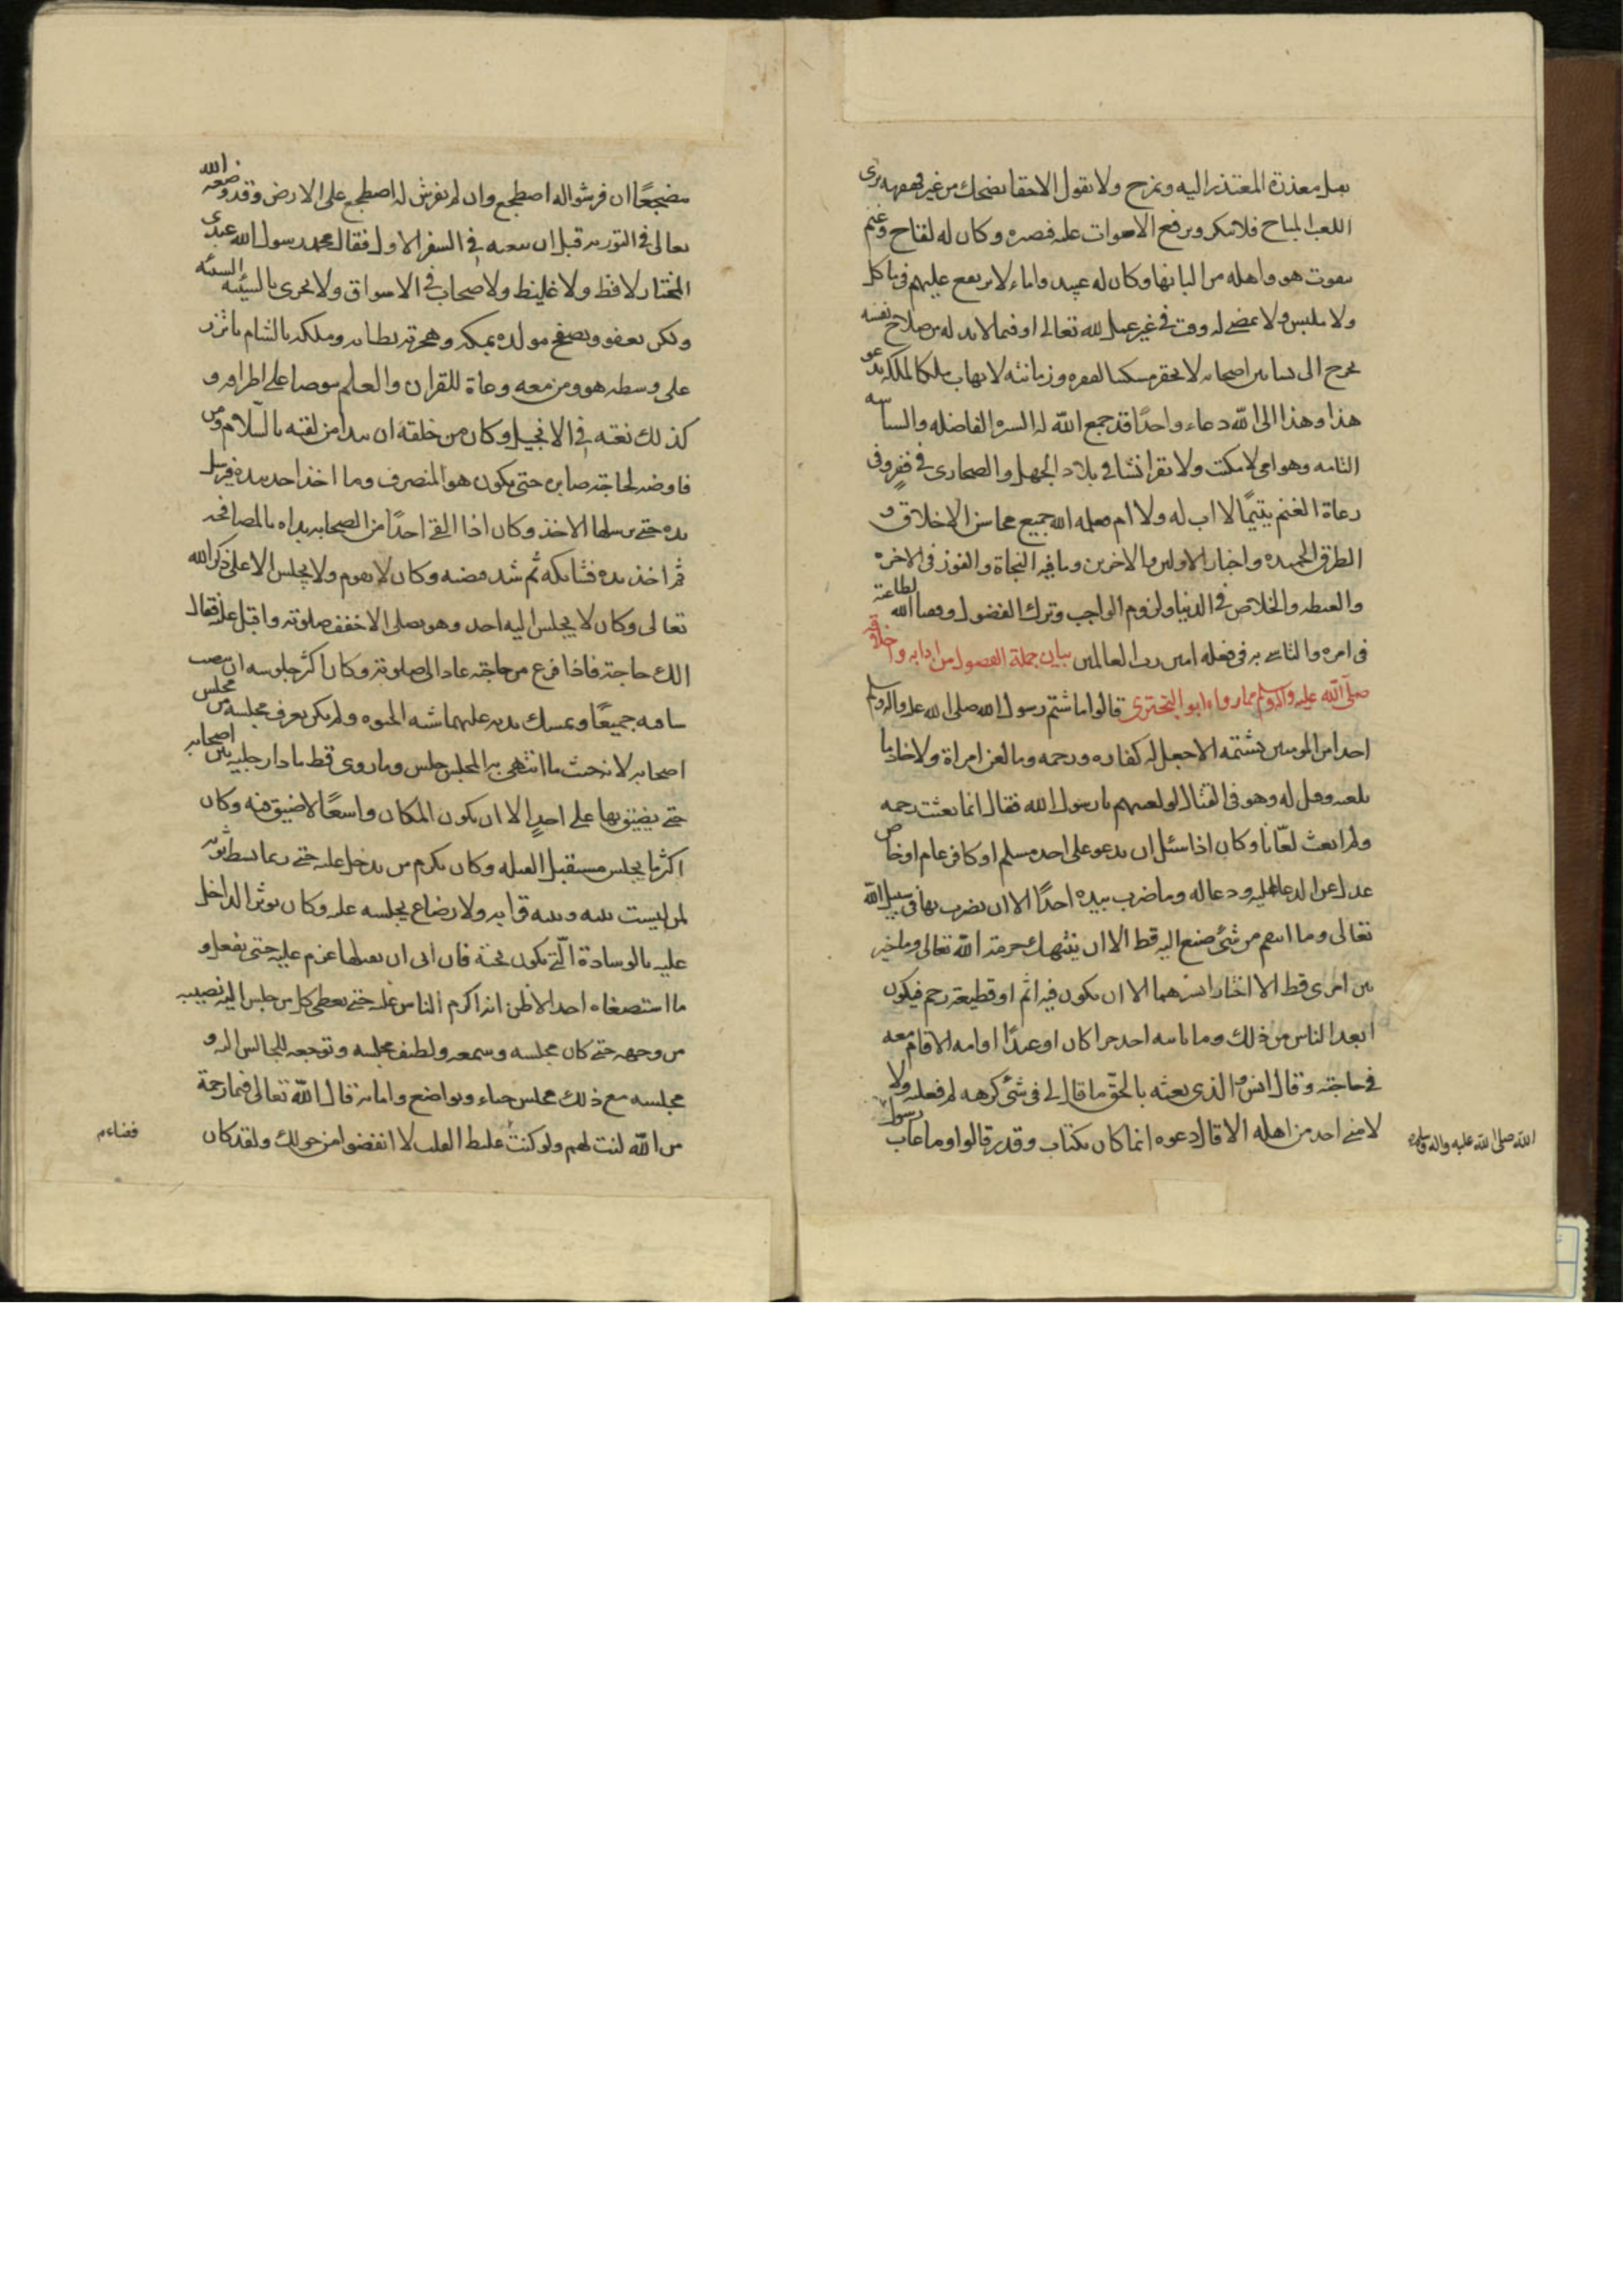 يقبل معذرة المعتذر اليه ويمزح ولا يقول الا حقا يضحك من غير قهقهة يرى
اللعب المباح فلا ينكر ويرفع الاصوات عليه فيصبر وكان له لقاح وغنم
يتقوت هو واهله من البانها وكان له عبيد واماء لا يرتفع عليهم في ماكل
ولا ملبس ولا يمضي له وقت في غير عمل لله تعالى او فيما لا بد له من صلاح نفسه
يخرج الى بساتين اصحابه لا يحقر مسكينا لفقره وزمانته لا يهاب ملكا لملكه يدعو
هذا وهذا الى الله دعاء واحدًا قد جمع الله له السيرة الفاضلة والسياسة
التامة وهو امي لا يكتب ولا يقرا نشا في بلاد الجهل والصحارى في فقر وفى
رعاة الغنم يتيمًا لا اب له ولا ام فعلمه الله جميع محاسن الاخلاق و
الطرق الحميدة واخبار الاولين والاخرين وما فيه النجاة والفوز في الاخرة
والغبطة والخلاص في الدنيا ولزوم الواجب وترك الفضول وفقنا الله لطاعته
في امره والتاسي به في فعله امين رب العالمين بيان جملة الفصول من ادابه واخلاقه
صلى الله عليه واله وسلم مما رواه ابو البخترى قالوا ما شتم رسول الله صلى الله عليه واله وسلم
احدا من المومنين بشتمه الا جعل له كفارة ورحمة وما لعن امراة ولا خادما
بلعنة وقيل له وهو فى القتال لو لعنتهم يا رسول الله فقال انما بعثت رحمة
ولم ابعث لعّانا وكان اذا سئل ان يدعو على احد مسلم او كافر عام او خاص
عدل عن الدعا عليه ودعا له وما ضرب بيده احدًا الا ان يضرب بها في سبيل الله
تعالى وما انتقم من شئ صنع اليه قط الا ان ينتهك حرمة الله تعالى وما خير
بين امرين قط الا اختار ايسرهما الا ان يكون فيه اثم او قطيعة رحم فيكون
ابعد الناس من ذلك وما ياتيه احد حرا كان او عبدًا او امة الا قام معه
في حاجته وقال انس والذى بعثه بالحق ما قال لى في شئ كرهه لم فعلته ولا
لامني احد من اهله الا قال دعوه انما كان بكتاب وقدر قالوا وما عاب رسول
الله صلى الله عليه واله وسلم
مضجعًا ان فرشوا له اضطجع وان لم يفرش له اضطجع على الارض وقد وصفه الله
تعالى في التورية قبل ان يبعثه في السفر الاول فقال محمد رسول الله عبدى
المختار لا فظ ولا غليظ ولا صخاب في الاسواق ولا يجزى بالسيئة السيئة
ولكن يعفو ويصفح مولده بمكة وهجرته بطابة وملكه بالشام ياتزر
على وسطه هو ومن معه وعاة للقران والعلم يتوضا على اطرافه و
كذلك نعته في الانجيل وكان من خلقه ان يبدا من لقيه بالسلام ومن
فاوضه لحاجة صابره حتى يكون هو المنصرف وما اخذ احد بيده فيرسل
يده حتى يرسلها الاخذ وكان اذا لقي احدًا من الصحابة بداه بالمصافحة
ثم اخذ يده فشابكه ثم شد قبضه وكان لا يقوم ولا يجلس الا على ذكر الله
تعالى وكان لا يجلس اليه احد وهو يصلى الا خفف صلوته واقبل عليه فقال
الك حاجة فاذا فرغ من حاجته عاد الى صلوته وكان اكثر جلوسه ان ينصب
ساقيه جميعًا ويمسك بيديه عليهما شبه الحبوة ولم يكن يعرف مجلسه من مجلس
اصحابه لانه حيث ما انتهى به المجلس جلس وما روى قط مادا رجليه بين اصحابه
حتى يضيق بها على احدٍ الا ان يكون المكان واسعًا لا ضيق فيه وكان
اكثر ما يجلس مستقبل القبلة وكان يكرم من يدخل عليه حتى ربما بسط ثوبه
لمن ليست بينه وبينه قرابة ولا رضاع يجلسه عليه وكان يوثر الداخل
عليه بالوسادة التي يكون تحته فان ابى ان يقبلها عزم عليه حتى يفعل و
ما استصغاه احد الا ظن انه اكرم الناس عليه حتى يعطى كل من جلس اليه نصيبه
من وجهه حتى كان مجلسه وسمعه ولطيف مجلسه وتوجهه للجالس اليه و
مجلسه مع ذلك مجلس حياء وتواضع وامانة قال الله تعالى فبما رحمة
من الله لنت لهم ولو كنت غليظ القلب لا انفضوا من حولك ولقد كان